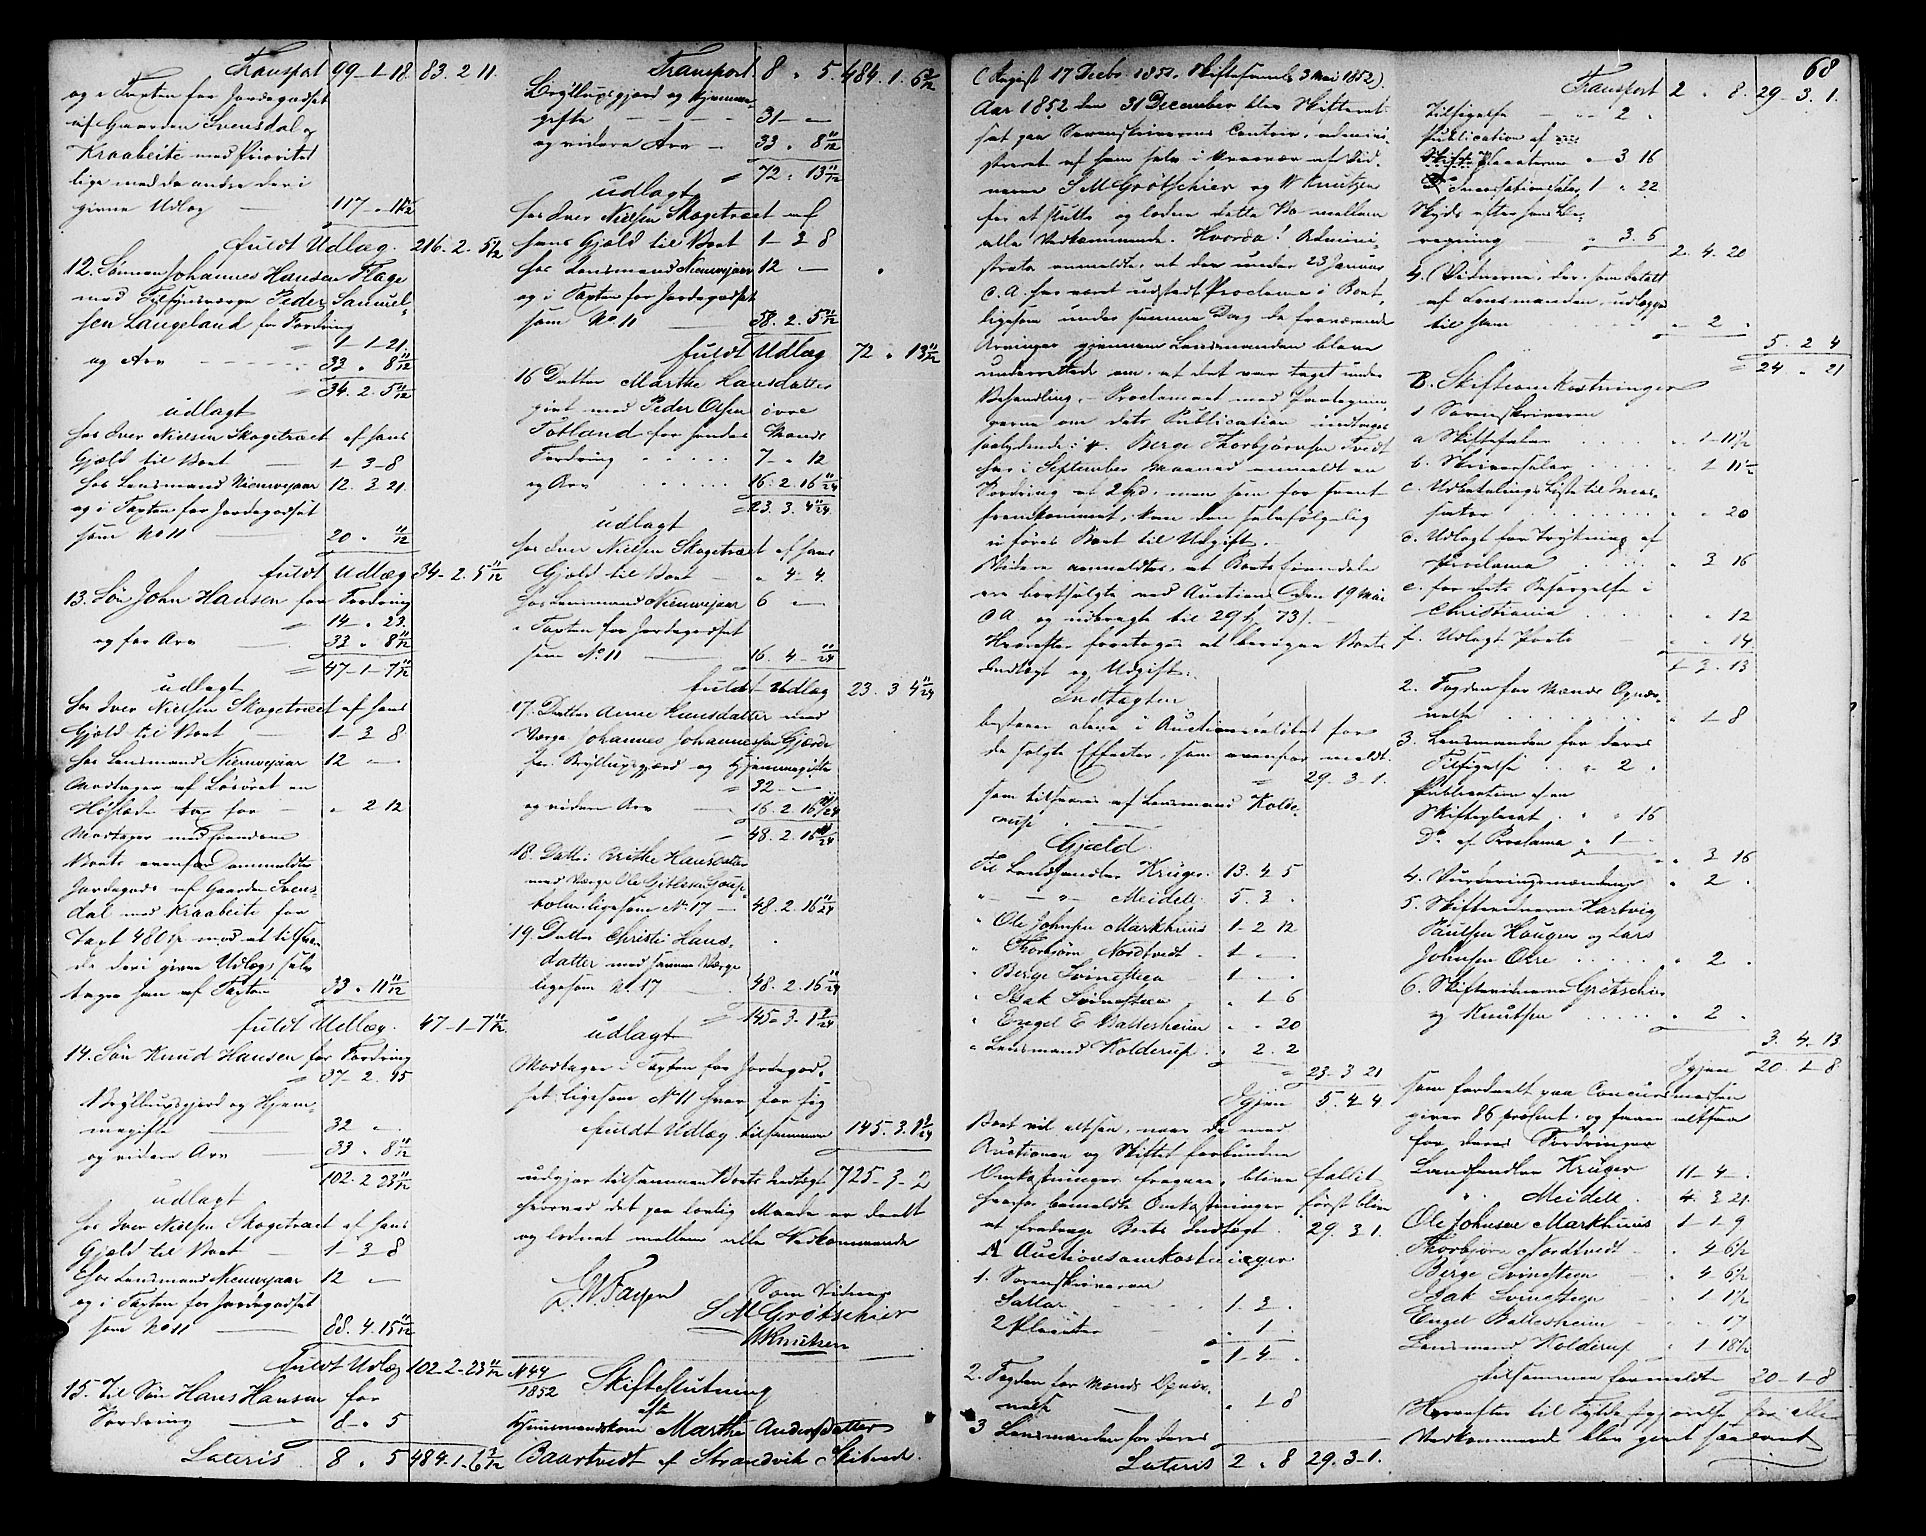 Transport 99-1-18. 83. 2 11.
og i Taxten for Jordegodset
af Gaarden Svensdal og
Kraabeite med Prioritet
lige med de andre deri
givne Udlæg 117 " 11 11/12
fuldt Udlæg. 216. 2. 5 11/12
12. Sønnen Johannes Hansen Flage
med Tilsynsværge Peder Samuel-
sen Langeland for Fordring
1-1-21.
og Arv 33 " 8 11/12
34. 2. 5 11/12
udlagt
hos Iver Nielsen Skogetræet af hans
Gjæld til Boet 1-3-8
hos Lensmand Nieuwejaar 12. 3 21.
og i Taxten for Jordegodset
som No 11 20 " 11/12
fuldt Udlæg 34-2. 5 11/12
13. Søn John Hansen for Fordring
14 " 23.
og for Arv 33 " 8 11/12
47-1-7 11/12
udlagt
hos Iver Nielsen Skogetræet af hans
Gjæld til Boet 1-3 8
hos Lensmand Nieuwejaar 12 "
Modtager af Løsøret en
Høslæde tax for " 2 12
Modtager med Frændene
Boets ovenfor Dommeldte
Jordegods af Gaarden Svens-
dal med Kraabeite for
Taxt 480 Sp med at tilsva-
re de deri givne Udlæg, selv
tager han af Taxten 33 " 11 11/12
fuldt Udlæg. 47-1-7 11/12
14. Søn Knud Hansen for Fordring
37-2. 15
Bryllupsgjerd og Hjem-
megifte 32 "
og videre Arv 33 " 8 11/12
102. 2 23 11/12
udlagt
hos Iver Nielsen Skogetræet af hans
Gjæld til Boet 1-3-8
hos Lensmand Nieuwejaar 12 "
og i Taxten for Jordegodset
som No 11 88. 4. 15 11/12
Fuldt Udlæg 102-2-23 11/12
15. Til Søn Hans Hansen for
Fordring 8 " 5
Lateris 8 " 5 484-1-6 7/12
Transport 8 " 5. 484. 1. 6 7/12
Bryllupsgjerd og Hjemme-
gifte 31 "
og videre Arv 33 " 8 11/12
72 " 13 11/12
udlagt
hos Iver Nielsen Skogetræet af
hans Gjæld til Boet 1-3 8
hos Lensmand Nieuwejaar 12 "
og i Taxten for Jordegodset
som No 11 58. 2. 5 11/12
fuldt Udlæg 72 " 13 11/12
16 Datter Marthe Hansdatter
givt med Peder Olsen øvre
Totland for hendes Mands
Fordring 7 " 12
og Arv 16. 2. 16 11/24
23. 3. 4 11/24
udlagt
hos Iver Nielsen Skogetræet af hans
Gjæld til Boet " 4-4.
hos Lensmand Nieuwejaar 6 "
i Taxten for Jordegodset
som No. 11 16. 4 - 11/24
fuldt Udlæg 23. 3 4 11/24
17. Datter Anne Hansdatter med
Værge Johannes Johannessen Gjærde
for Bryllupsgjerd og Hjemmegifte
32 "
og videre Arv 16. 2 16 11/24
48. 2. 16 11/24
18. Datter Brithe Hansdatter
med Værge Ole
holm ligesom No 17 48. 2. 16 11/24
19. Datter Christi Hans-
datter med samme Værge
ligesom No 17 48. 2-16 11/24
145-3-1 9/24
udlagt
Modtager i Taxten for Jordegod-
set ligesom No 11 hver for sig
fuldt Udlæg tilsammen 145. 3. 1 9/24
udgjør tilsammen Boets Indtægt 725-3-2
hvorved det paa lovlig Maade er deelt
og lodnet mellem alle Vedkommende
Som Vidner
S M Grøtschier
W Knutsen
N 44/1852 Skifteslutning
efter
Huusmandskone Marthe Andersdatter
Baartvedt af Strandvik Skibred.
68
(Regist 17 Decbr 1851. Skiftesaml 3 Mai 1852).
Aar 1852 den 31 December blev Skifteret
sat paa Sorenskriverens Contoir, admini-
streret af ham selv i Overvær af Vid-
nerne S M Grøtschier og W Knutzen
for at slutte og lodne dette Bo mellem
alle Vedkommende. Hvorda! Admini-
strator anmeldte, at der under 23 Januar
d. A. har været udstedt Proclama i Boet,
ligesom under samme Dag de fraværende
Arvinger gjennem Lensmanden bleve
underrettede om, at det var taget under
Behandling, Proclamaet med Paategnin-
gerne om dets Publication indtages
saalydende: #. Berge Thorbjørnsen Tvedt
har i September Maaned anmeldt en
Fordring af 2 Spd. men som for sent
fremkommet, kan den selvfølgelig
ei føres Boet til Udgift.
Videre anmeldtes, at Boets Eiendele
ere bortsolgte ved Auction den 19 Mai
d. A. og udbragte til 29 Sp 73 s.
Herefter foretoges at beregne Boets
Indtægt og Udgift:
Indtægten
bestaaer alene i Auctionsqvalitet for
de solgte Effecter, som ovenfor meldt.
29. 3-1.
som tilsvares af Lensmand Kolde-
rup.
Gjæld.
Til Landhandler Krüger 13. 4 5
" - " - Meidell. 5. 3 "
" Ole Johnsen Markhuus 1-2 12
" Thorbjørn Nordtvedt 1 "
" Berge Svinesteen 1 "
" Isak Svinesteen " 1-6
" Engel E Baltesheim " " 20
" Lensmand Kolderup " 2. 2
23. 3 21
Igjen 5. 4 4
Boet vil altsaa, naar de med
Auctionen og Skiftet forbundne
Omkostninger fragaae, blive fallit
hvorfor bemeldte Omkostninger først blive
at fradrage Boets Indtægt. 29. 3 1.
A Auctionsomkostninger
1. Sorenskriveren
Sallar 1. 3 .
2 Placater " 1 .
1-4 .
2. Fogden for Mands Opnæv-
nelse " 1-8
3 Lensmanden for deres
Lateris 2 " 8 29. 3-1.
Transport 2 " 8. 29-3. 1.
Tilsigelse " 2 "
Publication af
Placaterne " 3 16
Do Incassationssalær 1 " 22
Skyds efter hans Be-
regning " 3. 6
2. 4. 20
4. Vidnerne, der, som betalt
af Lensmanden, udlægges
til ham " 2 "
5. 2 4
24 " 21
B. Skifteomkostninger
1 Sorenskriveren
a Skiftesalær " 1-11 1/2
b. Skriversalær " 1 11 1/2
c. Udbetalings Liste til Incas-
sator " " 20
d. Udlagt for Trykning af
Proclama " 3 16
e. for dets Besørgelse i
Christiania " " 12
f. Udlagt Porto " " 14
1 3. 13
2. Fogden for Mands Opnæv-
nelse " 1-8
3. Lensmanden for deres
Tilsigelse " 2 "
Publication af en
Skifteplacat " " 16
Do. af Proclama " 1 -
" 3 16
4. Vurderingsmændene " 2 .
5. Skiftevidnerne Hartvig
Paulsen Haugen og Lars
Johnsen Øvre " 2 .
6. Skiftevidnerne Grøtschier
og Knutsen " 2 .
3. 4. 13
Igjen 20-1-8
som fordeelt paa Concursmassen
giver 86 procent. og faaer altsaa
for deres Fordringer
Landhandler Krüger 11-4-.
" Meidell. 4. 3 21.
Ole Johnsen Markhuus 1-1-9
Thorbjørn Nordtvedt " 4 6 1/2
Berge Svinesteen " 4-6 1/2
Isak Svinesteen " 1 1 1/2
Engel Baltesheim " " 17
Lensmand Kolderup " 1 18 1/2
tilsammen formeldte 20-1-8
Herefter til Fyldestgjørelse for alle
Vedkommende blev givet saadant